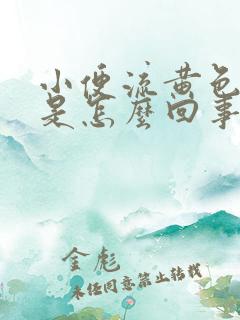 小便流黄色
是怎麼回事
金彪
未经同意禁止转载